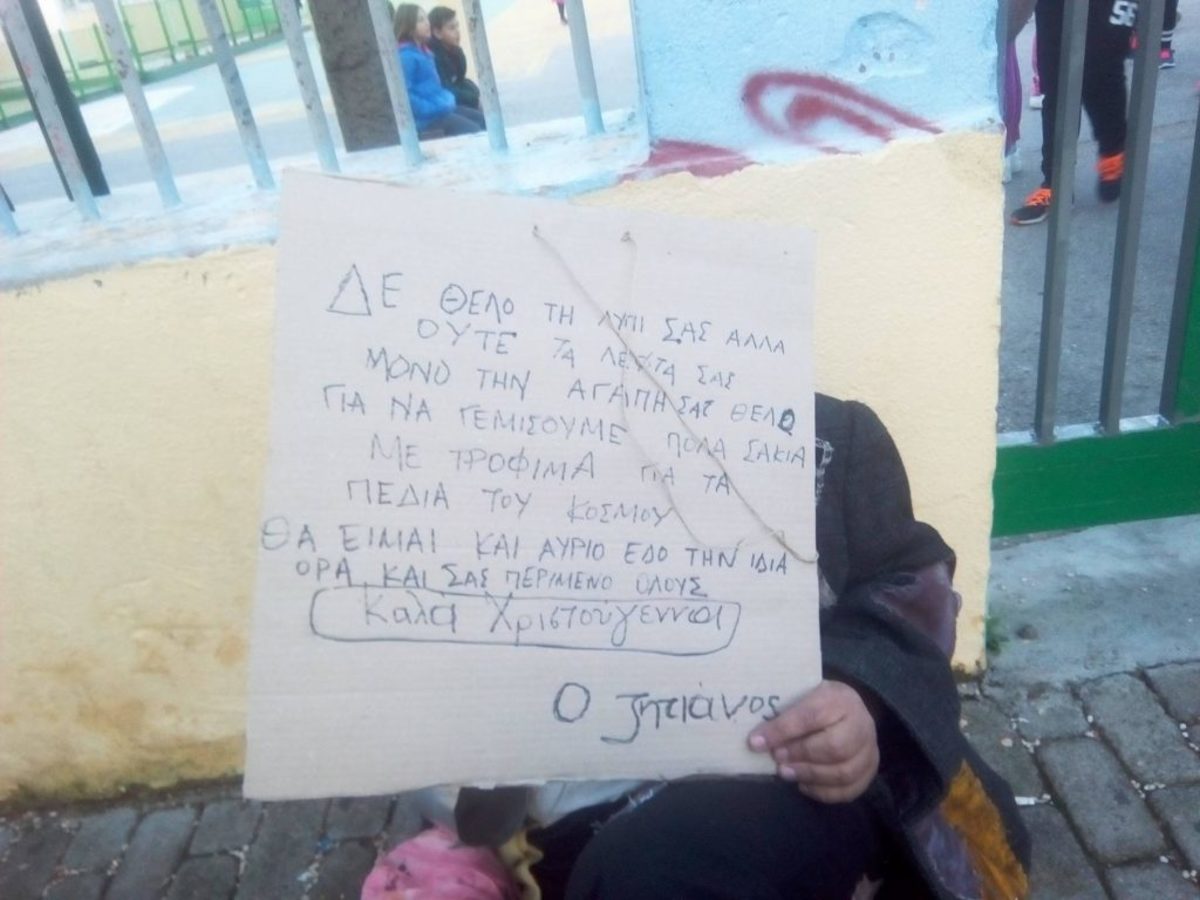 ΔΕ ΘΕΛΟ ΤΗ ΛΥΠΙ ΣΑΣ ΑΛΛΑ
ΟΥΤΕ ΤΑ ΛΕΦΤΑ ΣΑΣ
ΜΟΝΟ ΤΗΝ ΑΓΑΠΗ ΣΑΣ ΘΕΛΟ
ΓΙΑ ΝΑ ΓΕΜΙΣΟΥΜΕ ΠΟΛΑ ΣΑΚΙΑ
ΜΕ ΤΡΟΦΙΜΑ ΓΙΑ ΤΑ
ΠΕΔΙΑ ΤΟΥ ΚΟΣΜΟΥ
ΘΑ ΕΙΜΑΙ ΚΑΙ ΑΥΡΙΟ ΕΔΟ ΤΗΝ ΙΔΙΑ
ΟΡΑ ΚΑΙ ΣΑΣ ΠΕΡΙΜΕΝΟ ΟΛΟΥΣ
Καλά Χριστούγεννα
Ο ζητιάνος
56